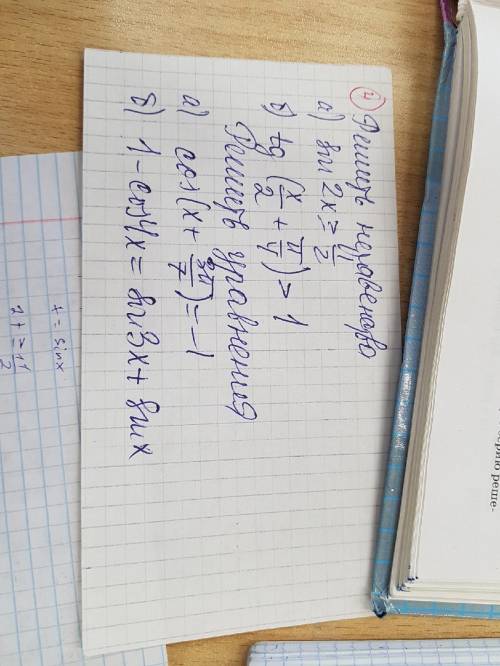 ④ Решить неравенство
а) sin 2x ≥ 1/2
б) tg (x/2 + π/4) > 1
Решить уравнения
а) cos(x + 3π/7) = -1
б) 1 - cos4x = sin3x + sinx
t = sinx
орию реше-